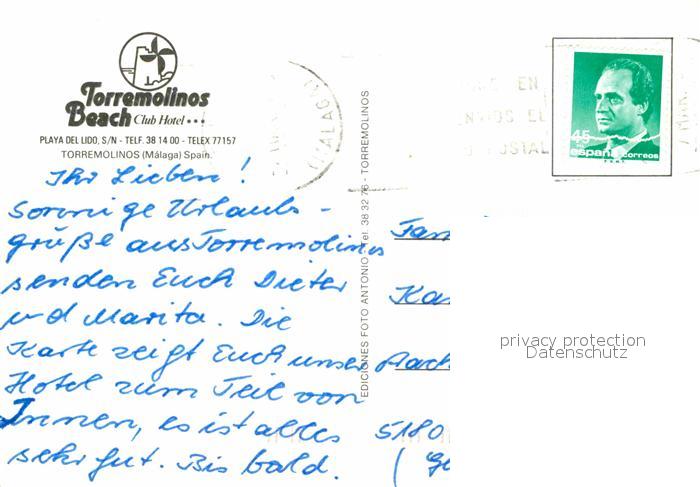 Torremolinos
Beach Club Hotel
PLAYA DEL LIDO, S/N - TELF. 38 14 00 - TELEX 77157
TORREMOLINOS (Málaga) Spain.
Ihr Lieben!
Sonnige Urlaubs-
grüße aus Torremolinos
senden Euch Dieter
und Marita. Die
Karte zeigt Euch unser
Hotel zum Teil von
Innen, es ist alles
sehr gut. Bis bald.
EDICIONES FOTO ANTONIO Tel. 38 32 76 - TORREMOLINOS
MALAGA
EN
OS EL
POSTAL
45
españa correos
Fam
Ka
5180
privacy protection
Datenschutz